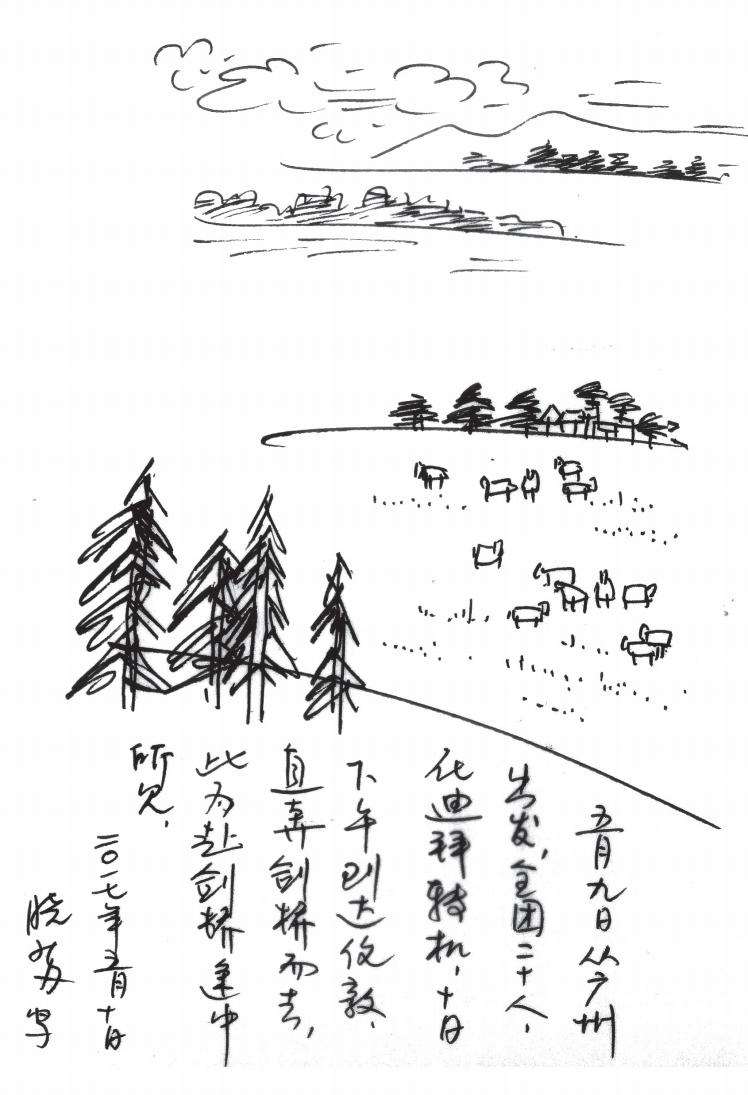 五月九日从广州
出发,全团二十人,
在迪拜转机,十日
下午到达伦敦,
直奔剑桥而去,
此为赴剑桥途中
所见,
二〇一七年五月十日
晓